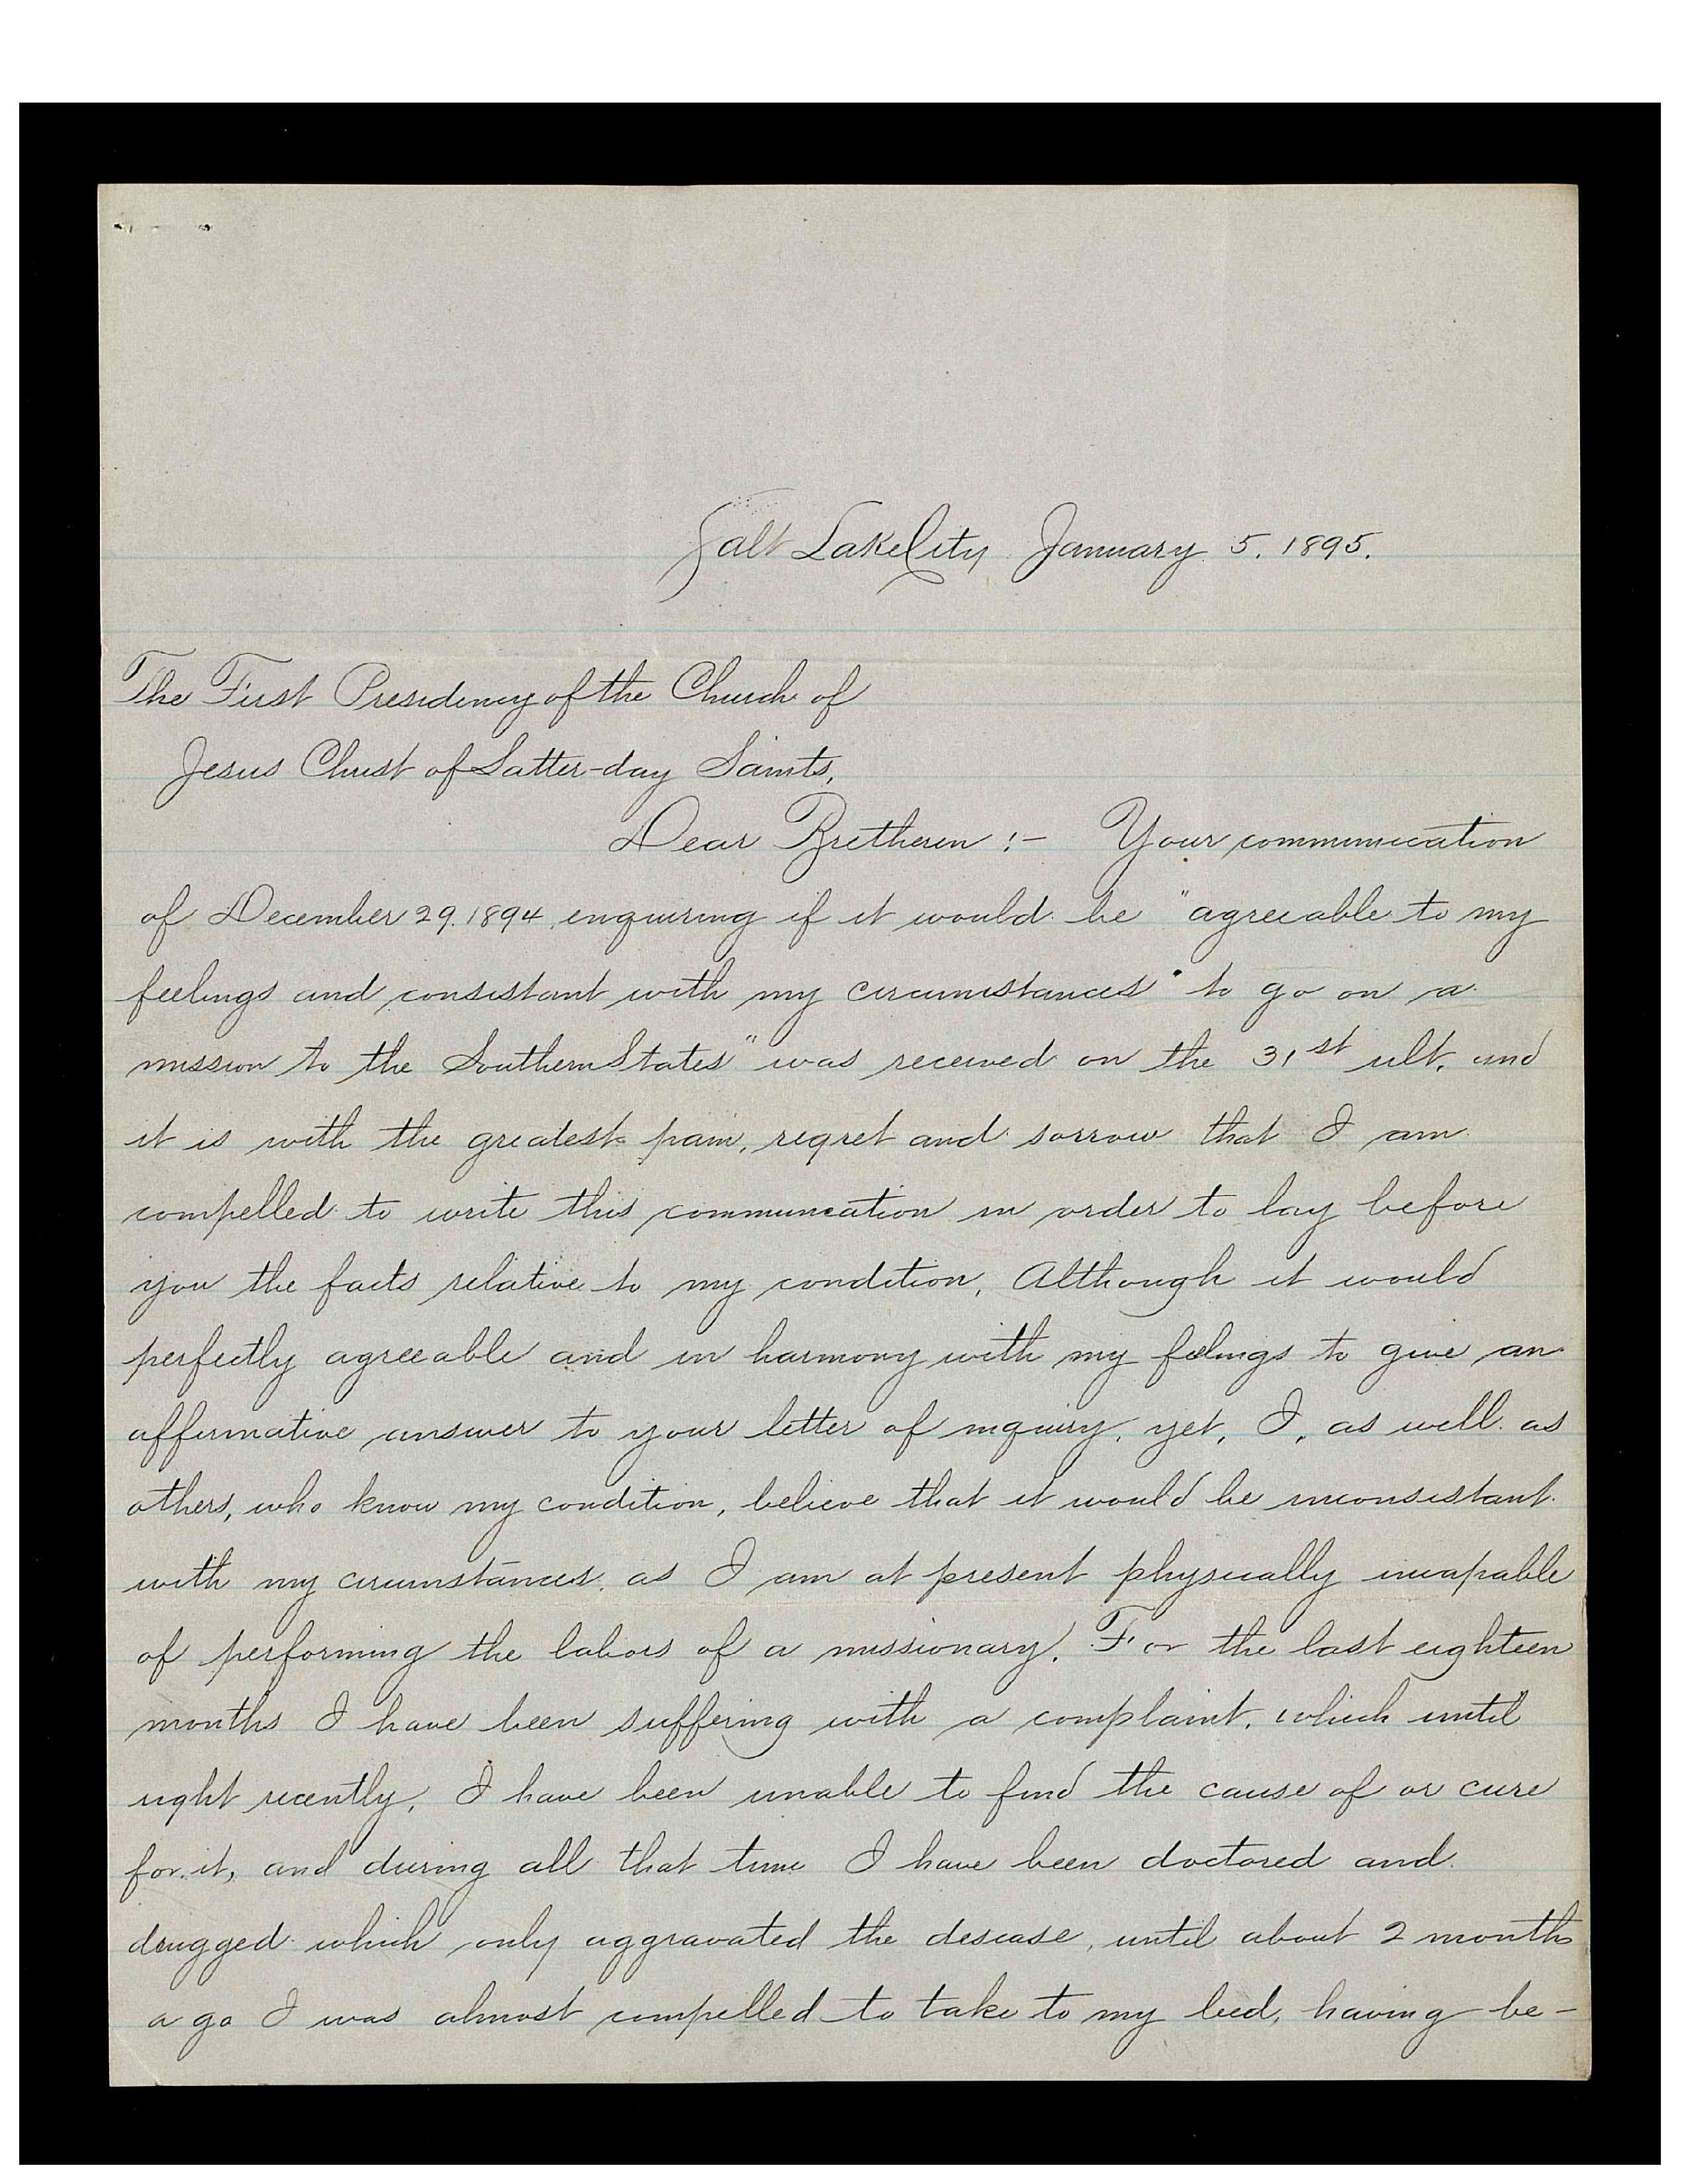 Salt Lake City January 5. 1895.
The First Presidency of the Church of
Jesus Christ of Latter-day Saints,
Dear Bretheren :- Your communication
of December 29. 1894, enquiring if it would be "agreeable to my
feelings and consistant with my circumstances" to go on a
mission to the Southern States" was received on the 31st ult. and
it is with the greatest pain, regret and sorrow that I am
compelled to write this communication in order to lay before
you the facts relative to my condition, Although it would
perfectly agreeable and in harmony with my feelings to give an
affirmative answer to your letter of inquiry, yet, I, as well as
others, who know my condition, believe that it would be inconsistant
with my circumstances, as I am at present physically incapable
of performing the labors of a missionary. For the last eighteen
months I have been suffering with a complaint, which until
right recently, I have been unable to find the cause of or cure
for it, and during all that time I have been doctored and
drugged which only aggravated the desease, until about 2 months
a go I was almost compelled to take to my bed, having be-